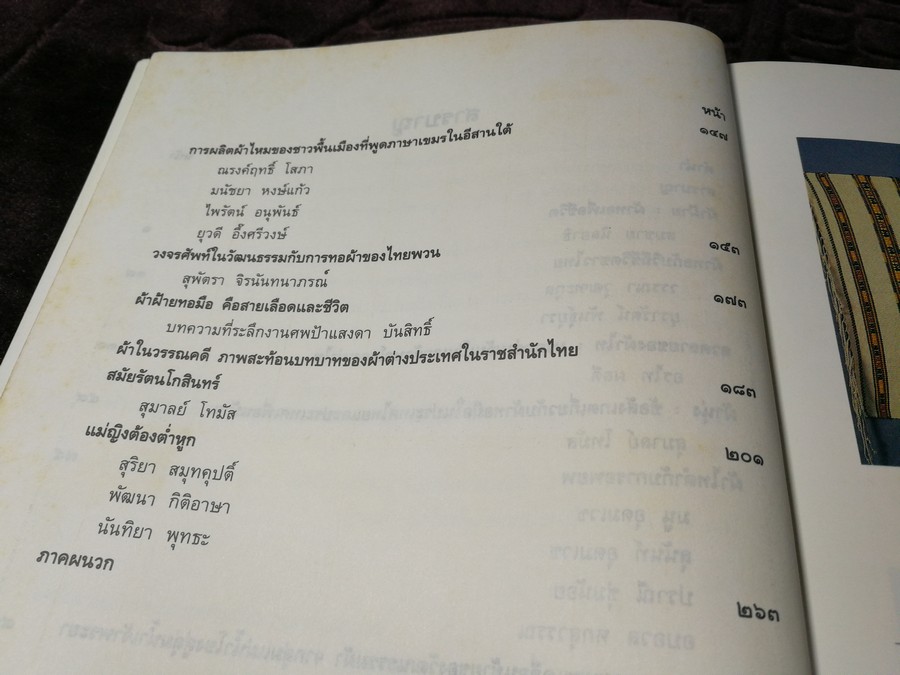 หน้า
การผลิตผ้าไหมของชาวพื้นเมืองที่พูดภาษาเขมรในอีสานใต้ ๑๔๗
ณรงค์ฤทธิ์ โสภา
มนัชยา หงษ์แก้ว
ไพรัตน์ อนุพันธ์
ยุวดี อึ๊งศรีวงษ์
วงจรศัพท์ในวัฒนธรรมกับการทอผ้าของไทยพวน ๑๕๓
สุพัตรา จิรนันทนาภรณ์
ผ้าฝ้ายทอมือ คือสายเลือดและชีวิต ๑๗๓
บทความที่ระลึกงานศพป้าแสงดา บันสิทธิ์
ผ้าในวรรณคดี ภาพสะท้อนบทบาทของผ้าต่างประเทศในราชสำนักไทย
สมัยรัตนโกสินทร์ ๑๘๓
สุมาลย์ โทมัส
แม่ญิงต้องต่ำหูก ๒๐๑
สุริยา สมุทคุปติ์
พัฒนา กิติอาษา
นันทิยา พุทธะ
ภาคผนวก ๒๖๓